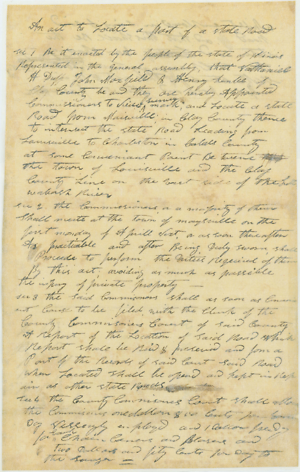 An act to Locate a part of a State Road
Sec 1 Be it enacted by the people of the state of Illinois
Represented in the General assembly, that Nathaniel
H Duff John Maxfield & Henry of
Clay County be and they are hereby appointed
Commissioners to view, mark and Locate a state
Road from Maysville in Clay County thence
to intersect the state Road leading from
Louisville to Charleston in Coles County
at some Convenient Point Between
the town of Louisville and the Clay
County Line on the East side of the
wabash River
Sec 2 the Commissioners or a majority of them
shall meete at the town of maysville on the
first monday of Aprill next or as soon thereafter
As practicable and after Being duly sworn shall
Proceede to perform the duties Required of them
By this act, avoiding as much as possible
the injury of private property
Sec 3 the said Commissioners shall as soon as
Cause to be filed with the Clerk of the
County Commissioners Court of said County
A Report of the Location of said Road which
Report shall be filed & preserved and form a
Part of the Records of said Court said Road
when Located shall be opend and kept in Rep
air as other state Roads
Sec 4 the County Commissioners Court shall allow
the Commissioners one dollar & 50 Cents per
Day necessaryly employed and 1 dollar per day
for Chain Carriers and and
two dollars and fifty Cents per day to
the